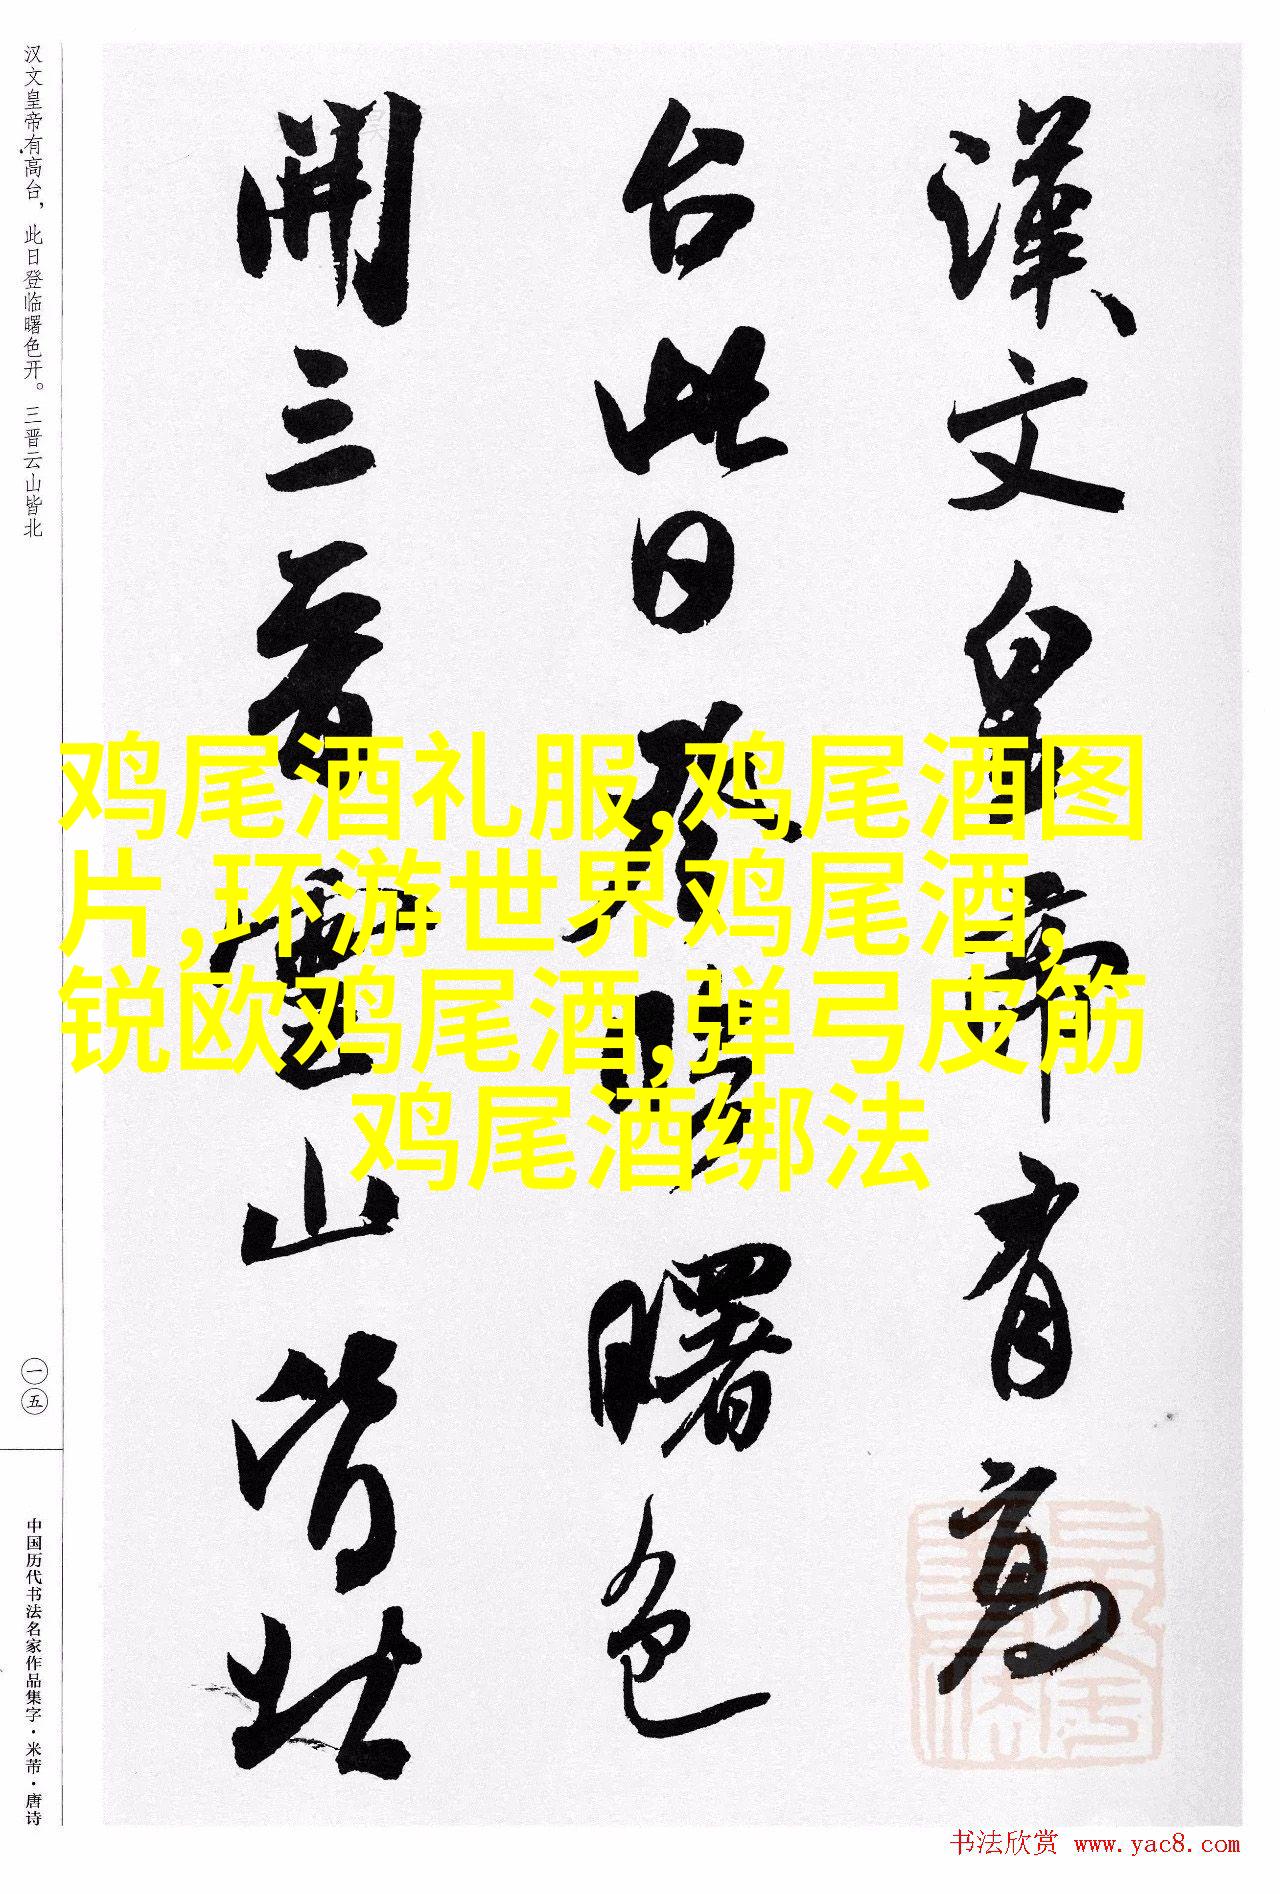 漢文皇帝有高
台此日登臨曙色
開三晉雲山皆北
汉文皇帝有高台，此日登临曙色开。三晋云山皆北
一五
中国历代书法名家作品集字·米芾·唐诗
鸡尾酒礼服,鸡尾酒图
片,环游世界鸡尾酒,
锐欧鸡尾酒,弹弓皮筋
鸡尾酒绑法
书法欣赏 www.yac8.com